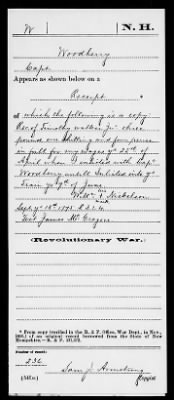 W N. H.
Woodberry
Capt.
Appears as shown below on a
Receipt *
of which the following is a copy:
Rec of Timothy walker Jr three
pound one shilling and four pence
in full for my wages ye 23d of
April when I inlisted with Capt
Woodberry untill Inlisted into ye
train ye 9th of June
Willm Nickelson
Sept ye 18th 1775 £ 3. 1. 4
Test James Mc Gregore
(Revolutionary War.)
* From copy (verified in the R. & P. Office, War Dept., in Nov.,
) of an original record borrowed from the State of New
Hampshire.—R. & P.
Number of record:
236
Sam J. Armstrong
Copyist